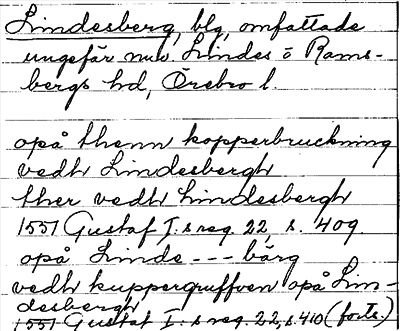 Lindesberg, blg, omfattade
ungefär nuv. Lindes o Rams-
bergs hd, Örebro l.
opå thenn kopperbruckning
vedh Lindesbergh
ther vedh Lindesbergh
1551 Gustaf I:s reg. 22, s. 409
opå Linde --- bärg
vedh kuppergruffven opå Lin-
desbergh
1551 Gustaf I:s reg. 22, s. 410 (forts.)